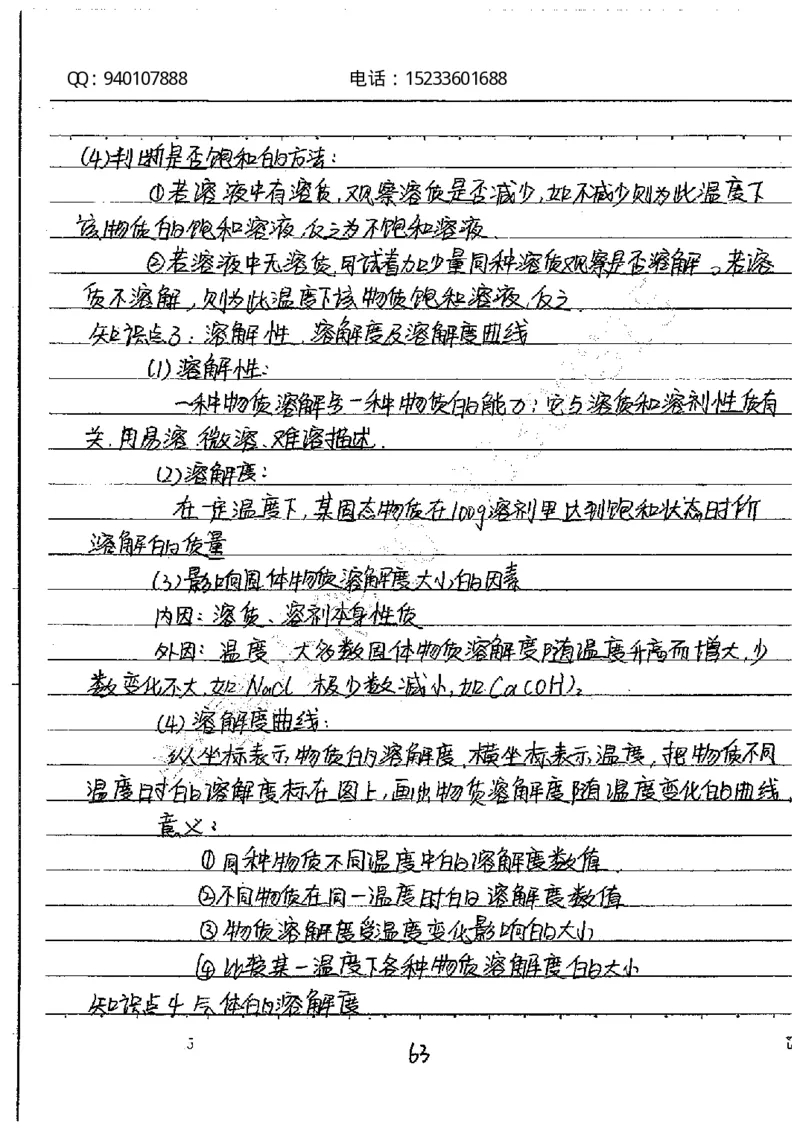 QQ：940107888 电话：15233601688
(4)判断是否饱和的方法：
①若溶液中有溶质,观察溶质是否减少,如不减少则为此温度下
该物质的饱和溶液,反之为不饱和溶液.
②若溶液中无溶质,可试着加少量同种溶质观察是否溶解。若溶
质不溶解,则为此温度下该物质饱和溶液,反之.
知识点3：溶解性.溶解度及溶解度曲线
(1)溶解性：
一种物质溶解另一种物质的能力；它与溶质和溶剂性质有
关.用易溶.微溶、难溶描述.
(2)溶解度：
在一定温度下,某固态物质在100g溶剂里达到饱和状态时所
溶解的质量
(3)影响固体物质溶解度大小的因素
内因：溶质、溶剂本身性质
外因：温度 大多数固体物质溶解度随温度升高而增大,少
数变化不大,如NaCl 极少数减小,如Ca(OH)₂
(4)溶解度曲线：
纵坐标表示物质的溶解度,横坐标表示温度,把物质不同
温度时的溶解度标在图上,画出物质溶解度随温度变化的曲线.
意义：
①同种物质不同温度中的溶解度数值.
②不同物质在同一温度时的溶解度数值
③物质溶解度受温度变化影响的大小
④比较某一温度下各种物质溶解度的大小
知识点4 气体的溶解度
63